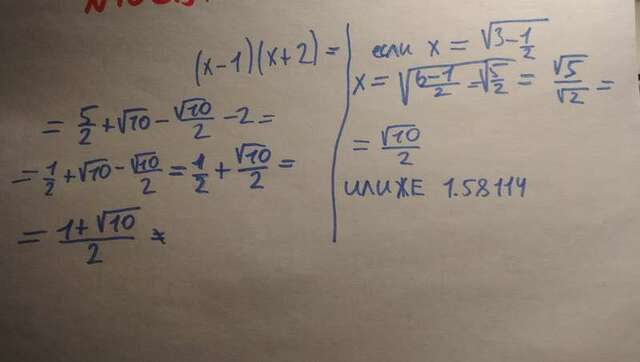 (x-1)(x+2)=
= 5/2 + √10 - √10/2 - 2 =
= 1/2 + √10 - √10/2 = 1/2 + √10/2 =
= (1+√10)/2
если x = √(3 - 1/2)
x = √((6-1)/2) = √(5/2) = √5/√2 =
= √10/2
ИЛИ ЖЕ 1.58114